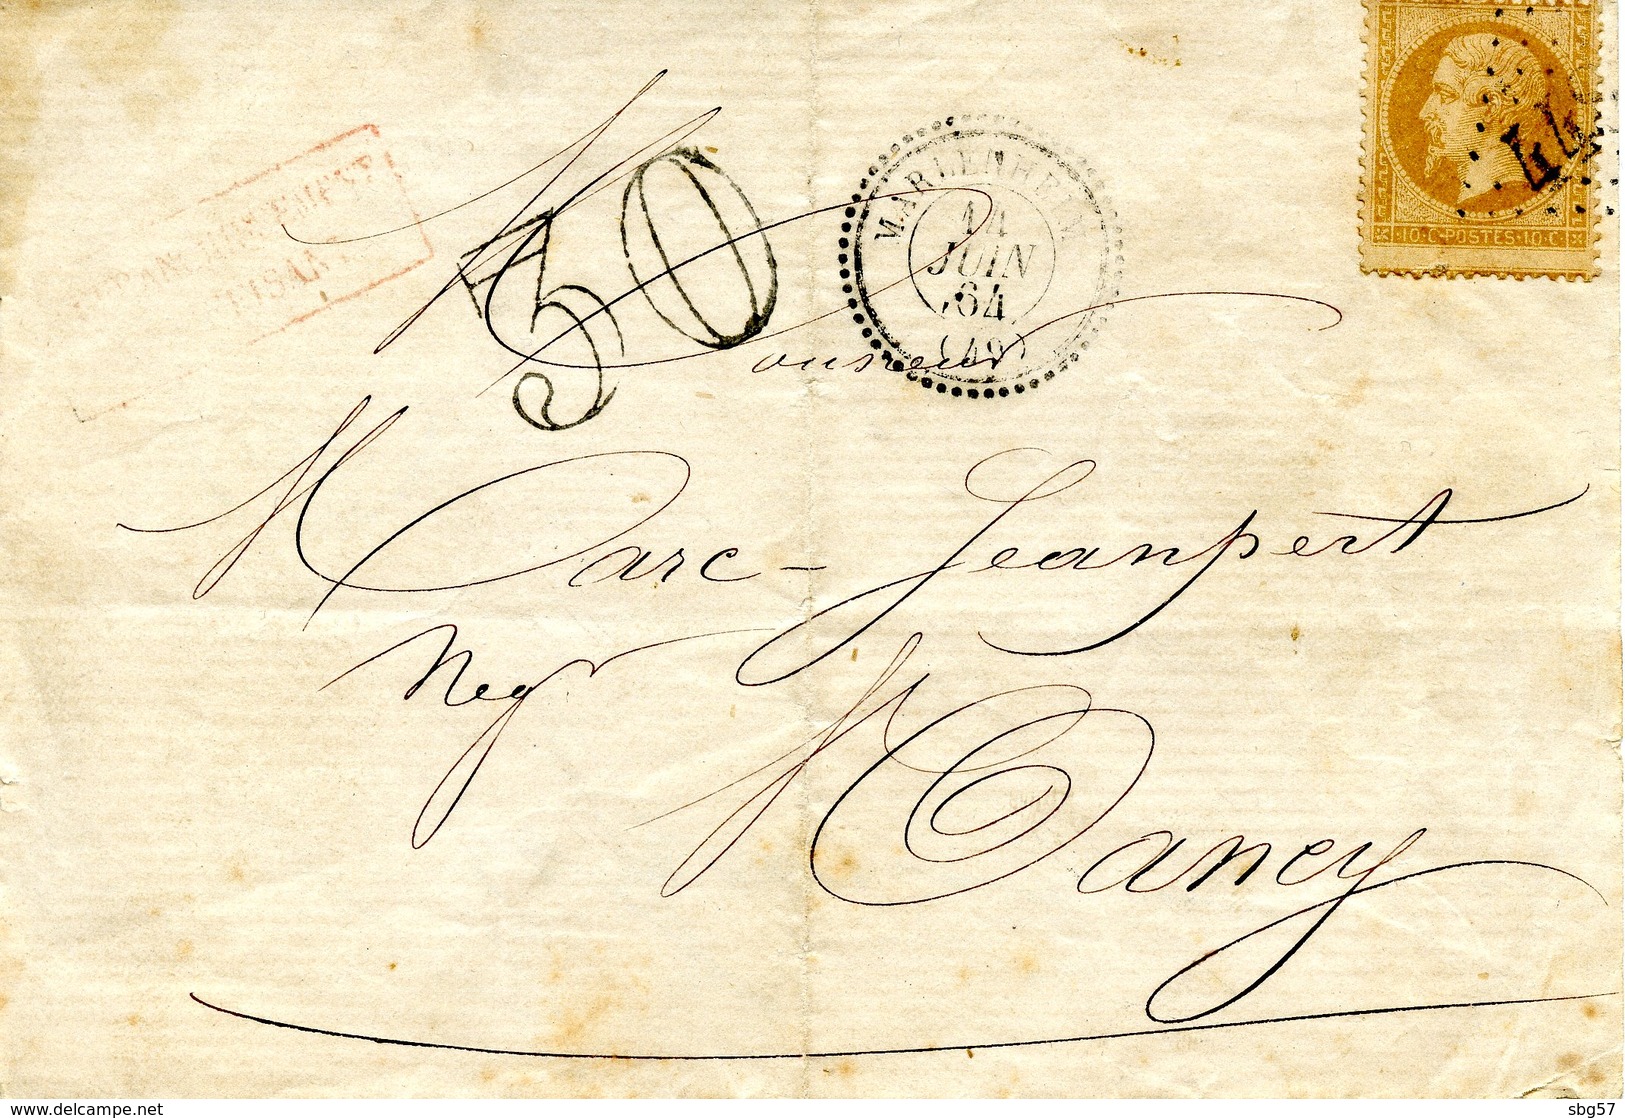 AFFRANCHISSEMENT
INSUFFISANT
30
MARLENHEIM
14
JUIN
64
(49)
10.C.POSTES.10.C
Monsieur
Marc-Jeanpert
Neg
Nancy
www.delcampe.net
sbg57